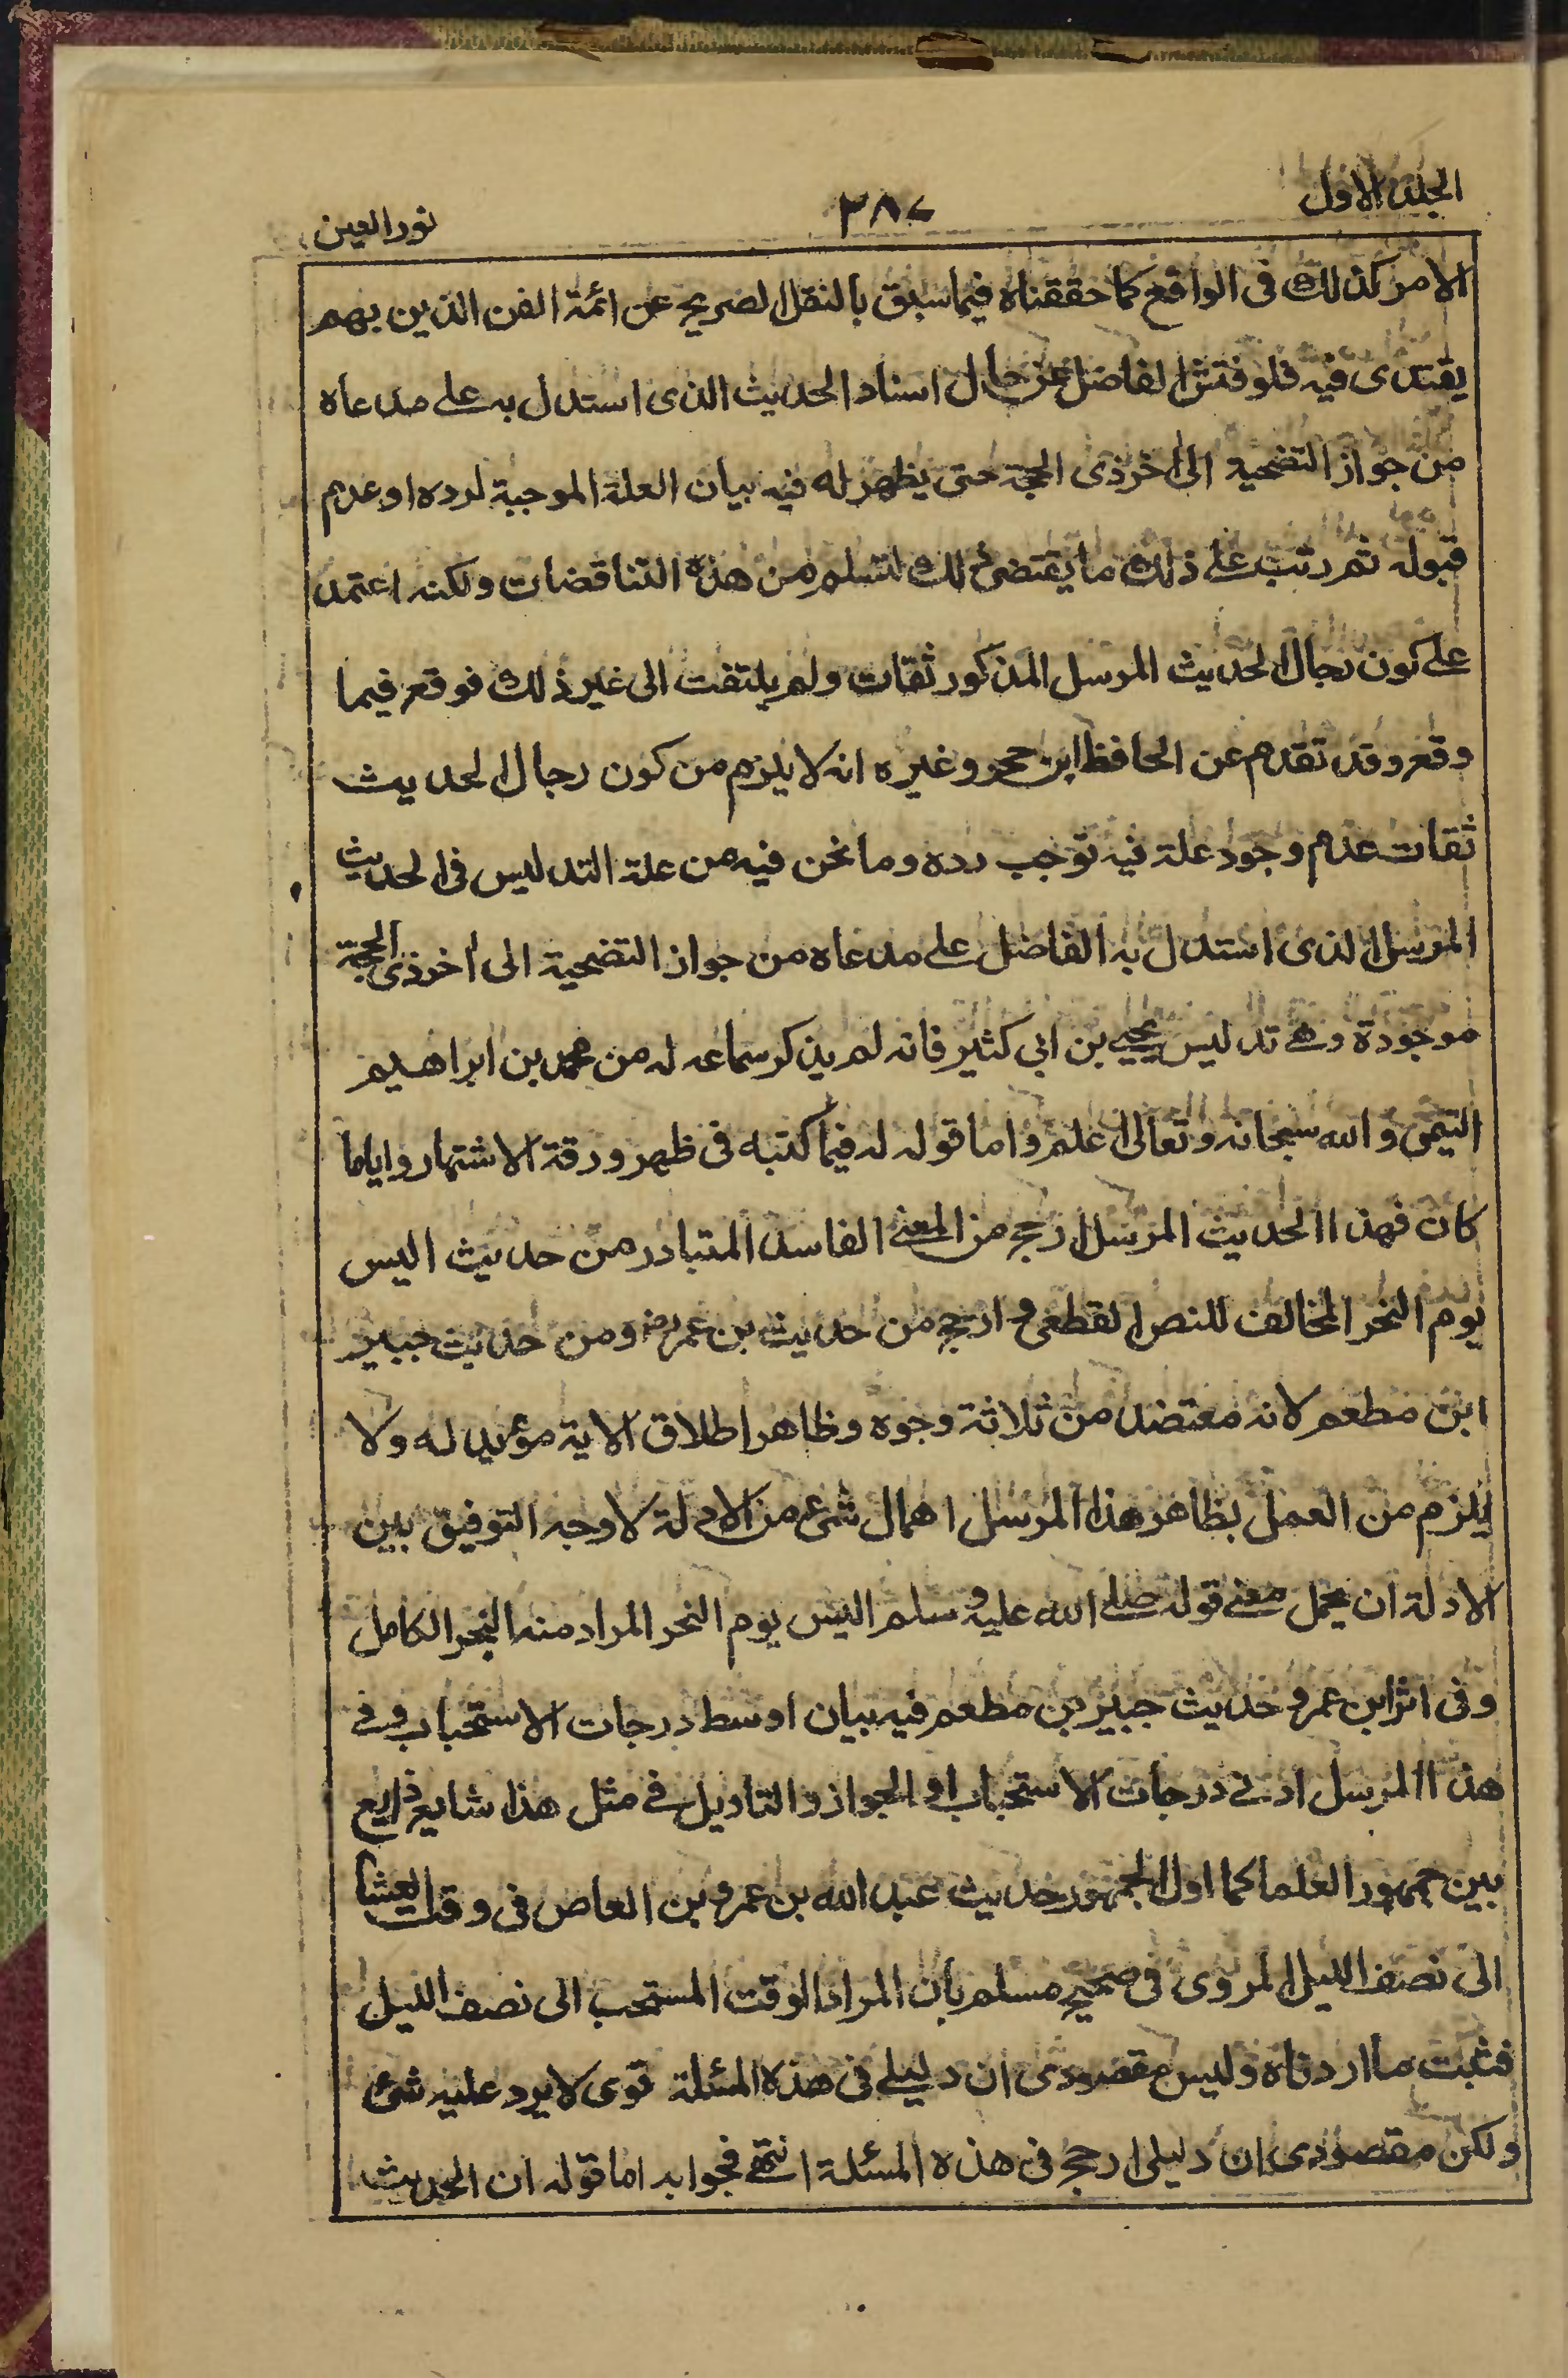 الجلد الاول
٣٨٧
نور العين
الامر كذلك فى الواقع كما حققناه فيما سبق بالنقل الصريح عن ائمة الفن الذين بهم
يقتدى فيه فلو فتش الفاضل عن حال اسناد الحديث الذى استدل به على مدعاه
من جواز التضحية الى اخر ذى الحجة حتى يظهر له فيه بيان العلة الموجبة لرده او عدم
قبوله ثم رتب على ذلك ما يقتضى ذلك لتسلم من هذه التناقضات ولكنه اعتمد
على كون رجال الحديث المرسل المذكور ثقات ولم يلتفت الى غير ذلك فوقع فيما
وقع وقد تقدم عن الحافظ ابن حجر وغيره انه لا يلزم من كون رجال الحديث
ثقات عدم وجود علة فيه توجب رده وما نحن فيه من علة التدليس فى الحديث
المرسل الذى استدل به الفاضل على مدعاه من جواز التضحية الى اخر ذى الحجة
موجودة وهى تدليس يحيى بن ابى كثير فانه لم يذكر سماعه له من محمد بن ابراهيم
التيمى والله سبحانه وتعالى اعلم واما قوله له فيما كتبه فى ظهر ورقة الاشتهار واياما
كان فهذا الحديث المرسل ارجح من المعنى الفاسد المتبادر من حديث اليس
يوم النحر المخالف للنص القطعى و ارجح من حديث بن عمر رضـ ومن حديث جبير
ابن مطعم لانه معتضد من ثلاثة وجوه وظاهر اطلاق الاية مؤيد له ولا
يلزم من العمل بظاهر هذا المرسل اهمال شىء من الادلة لا وجه التوفيق بين
الادلة ان يحمل معنى قوله صلى الله عليه وسلم اليس يوم النحر المراد منه النحر الكامل
وفى اثر ابن عمر و حديث جبير بن مطعم فيه بيان اوسط درجات الاستحباب وفى
هذا المرسل ادنى درجات الاستحباب او الجواز والتاويل فى مثل هذا شايع ذايع
بين جمهور العلما كما اول الجمهور حديث عبد الله بن عمرو بن العاص فى وقت العشا
الى نصف الليل المروى فى صحيح مسلم بان المراد الوقت المستحب الى نصف الليل
فثبت ما اردناه وليس مقصودى ان دليلى فى هذه المسئلة قوى لا يرد عليه شىء
ولكن مقصودى ان دليلى ارجح فى هذه المسئلة انتهى فجوابه اما قوله ان الحديث